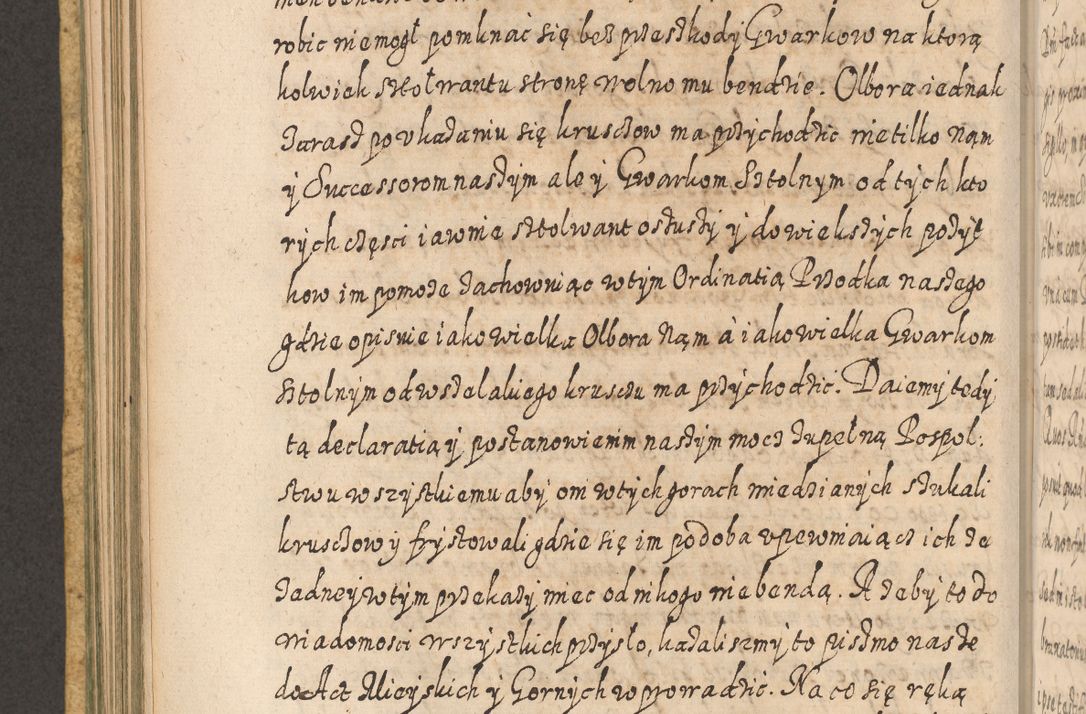 robic niemogł pomknać się bez przeszkody Gwarkow na ktorą
kolwiek sztolwantu stronę wolno mu bendzie. Olbora iednak
zarasz po vkazaniu się kruszczow ma przychodzic nietilko Nąm
y Successorom naszym ale y Gwarkom Sztolnym od tych kto
rych częsci iawnie sztolwant osłuszy y do wiekszych pozyt
kow im pomoze zachowuiąc w tym Ordinatią Przodka naszego
gdzie opisuie iako wielka Olbora Nąm à iako wielka Gwarkom
Sztolnym od wszelakiego kruszczu ma przychodzic. Daiemy tedy
tą declaratią y postanowieniem naszym mocz zupełną Pospol:
stwu wszystkiemu aby oni w tych gorach miedzianych szukali
kruszczow y frystowali gdzie się im podoba vpewniaiącz ich ze
zadney w tym przekazy miec od nikogo niebendą. A zeby to do
wiadomosci wszystkich przyszło, kazaliszmy to piszmo nasze
do Act Mieyskich y Gornych wprowadzic. Na co się ręką